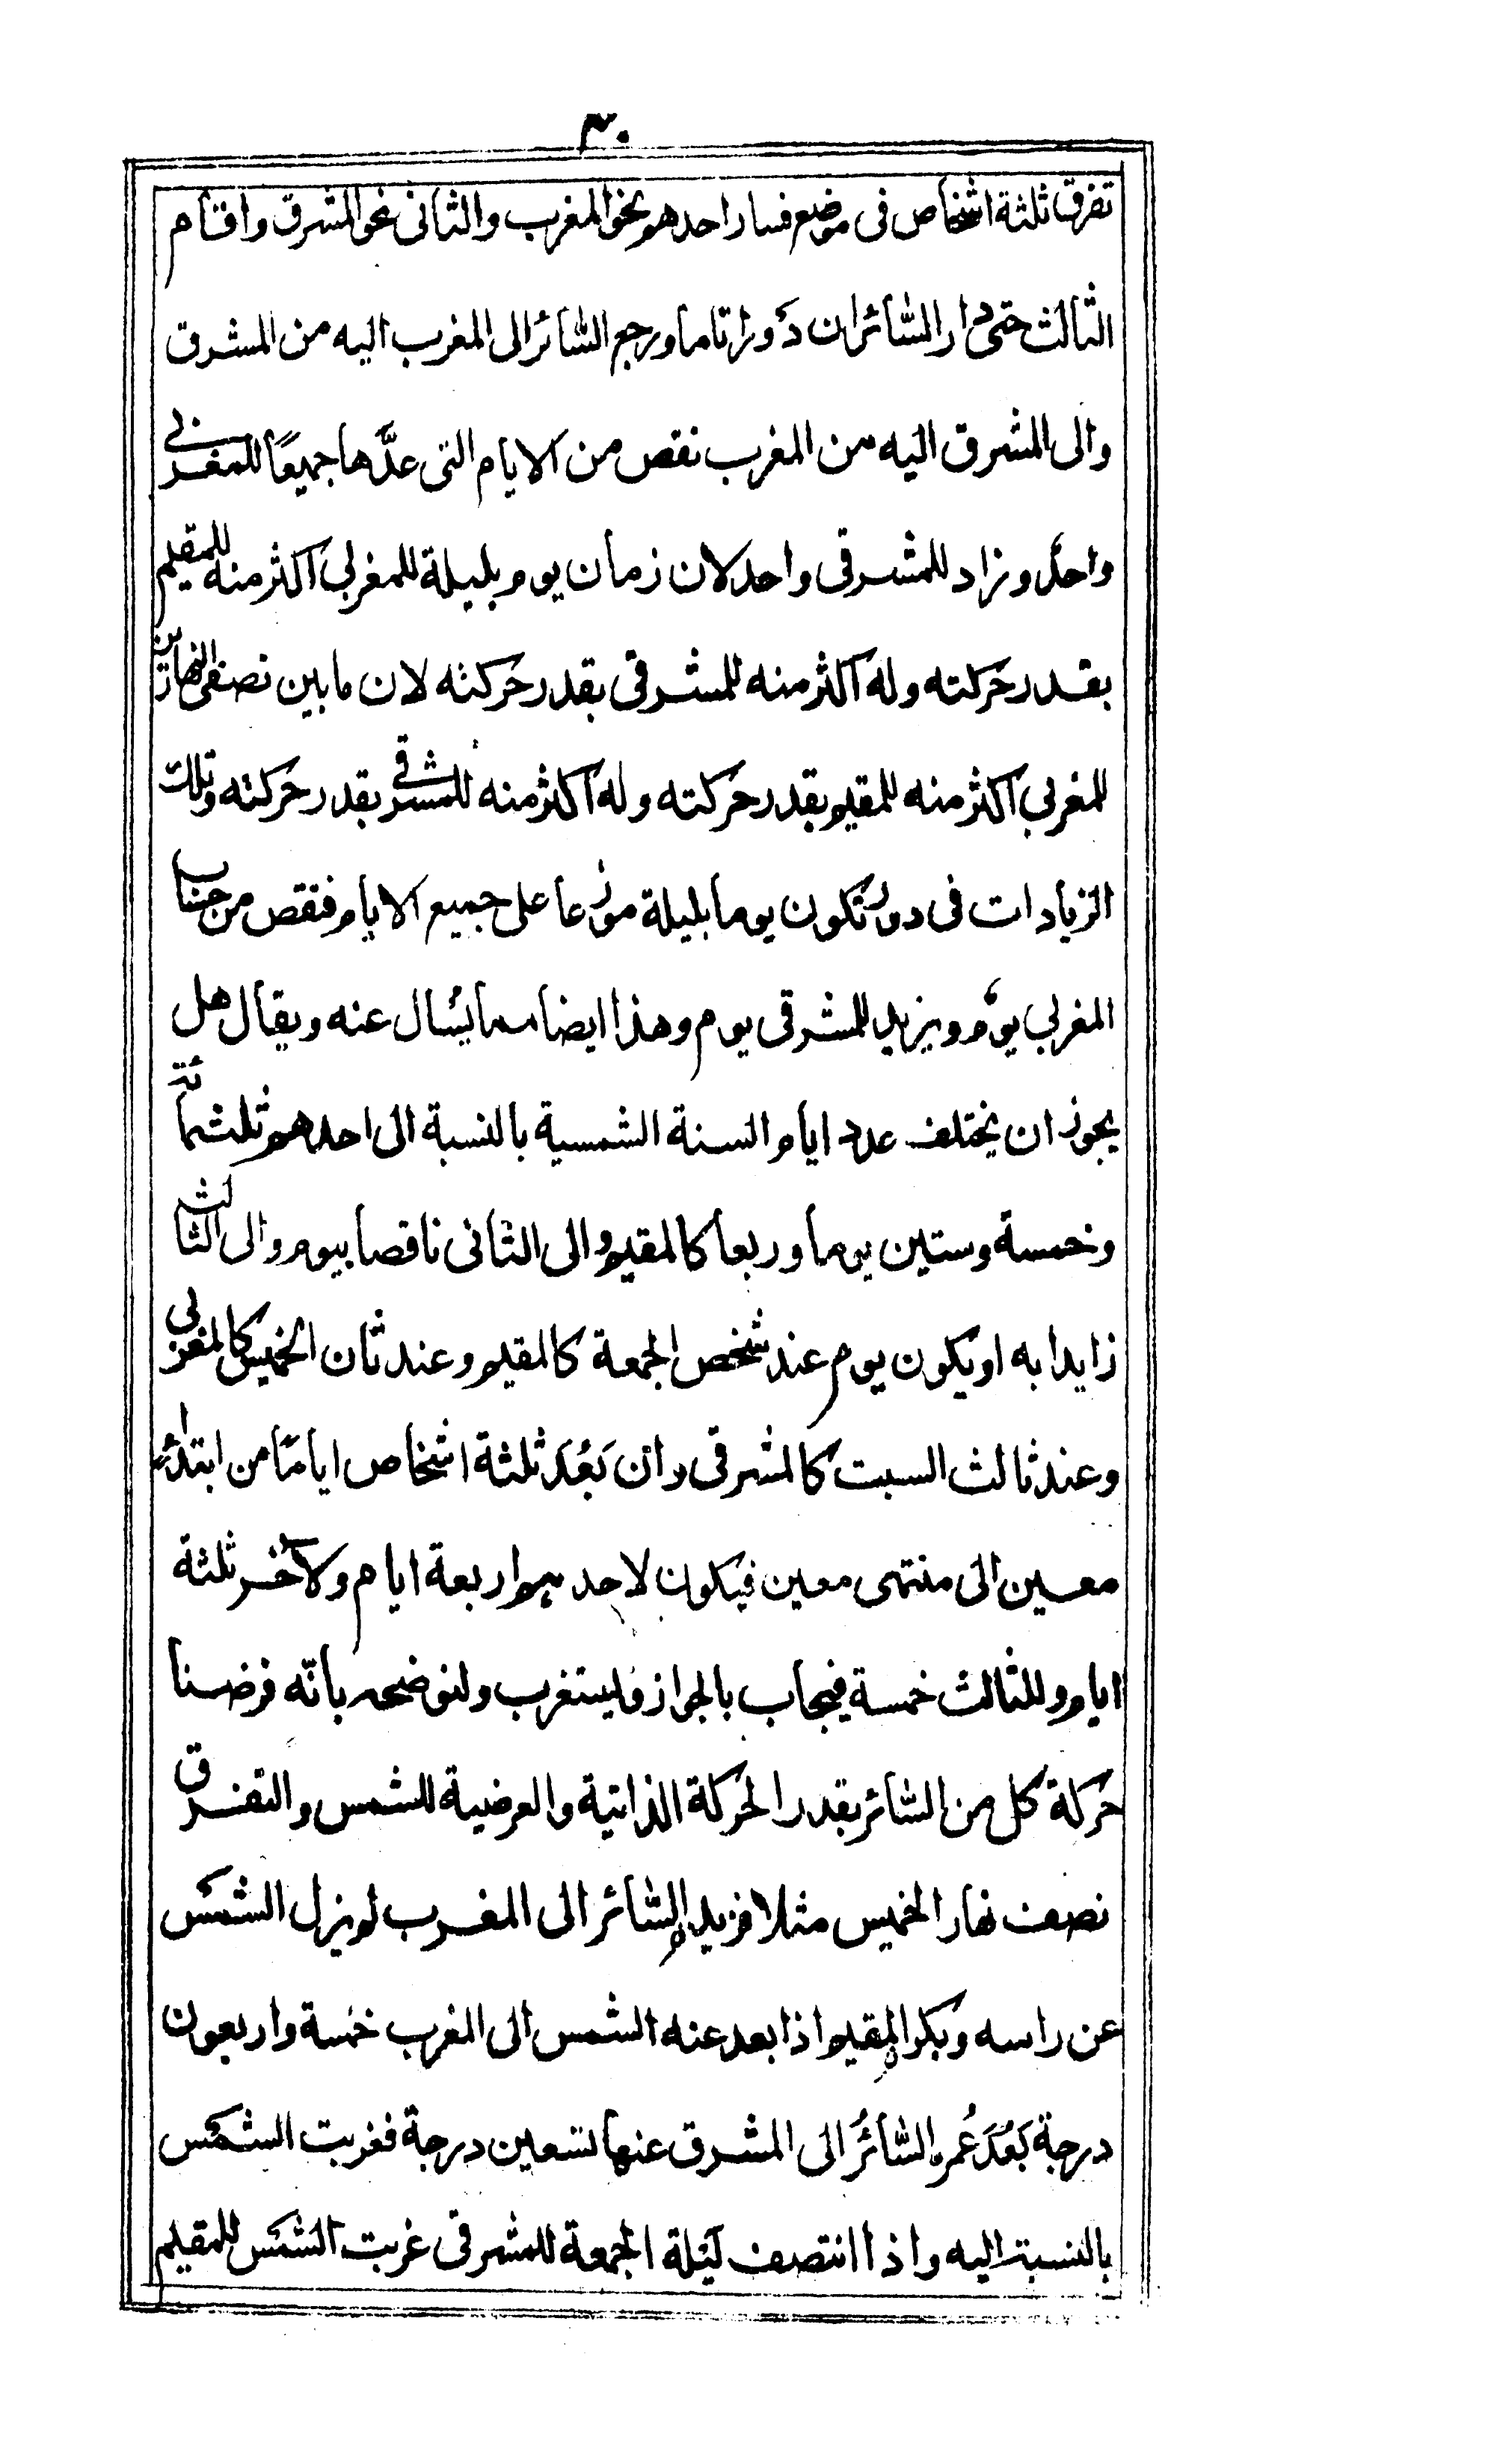 ٣٠
تفرق ثلثة اشخاص فى موضع فسار احدهم نحو المغرب والثانى نحو المشرق واقام
الثالث حتى دار السّائران دَورا تاما ورجع السّائر الى المغرب اليه من المشرق
والى المشرق اليه من المغرب نقص من الايام التى عدَّها جميعًا للمغربى
واحدٌ وزاد للمشرقى واحد لان زمان يوم بليلة للمغربى اكثر منه للمقيم
بقدر حركته وله اكثر منه للمشرقى بقدر حركته لان مابين نصفى النهارين
للمغربى اكثر منه للمقيم بقدر حركته وله اكثر منه للمشرقى بقدر حركته وتلك
الزيادات فى دور تكون يوما بليلة موزعا على جميع الايام فنقص من حساب
المغربى يومٌ ويزيد للمشرقى يوم وهذا ايضا مما يُسال عنه ويقال هل
يجوز ان يختلف عدد ايام السنة الشمسية بالنسبة الى احدهم ثلثمائة
وخمسة وستين يوما وربعا كالمقيم والى الثانى ناقصا بيوم والى الثالث
زايدا به او يكون يوم عند شخص الجمعة كالمقيم وعند ثان الخميس كالمغربى
وعند ثالث السبت كالمشرقى وان يَعُدَ ثلثة اشخاص اياما من ابتداء
معين الى منتهى معين فيكون لاحدهم اربعة ايام ولآخر ثلثة
ايام وللثالث خمسة فيجاب بالجواز فليستغرب ولنوضحه بانّه فرضنا
حركة كل من السّائر بقدر الحركة الذاتية والعرضية للشمس والتفرق
نصف نهار الخميس مثلا فزيد السّائر الى المغرب لم يزل الشمس
عن راسه وبكر المقيم اذا بعد عنه الشمس الى المغرب خمسة واربعون
درجة بَعُدَ عُمر السّائرُ الى المشرق عنها تسعين درجة فغربت الشمس
بالنسبة اليه واذا انتصف ليلة الجمعة للمشرقى غربت الشمس للمقيم